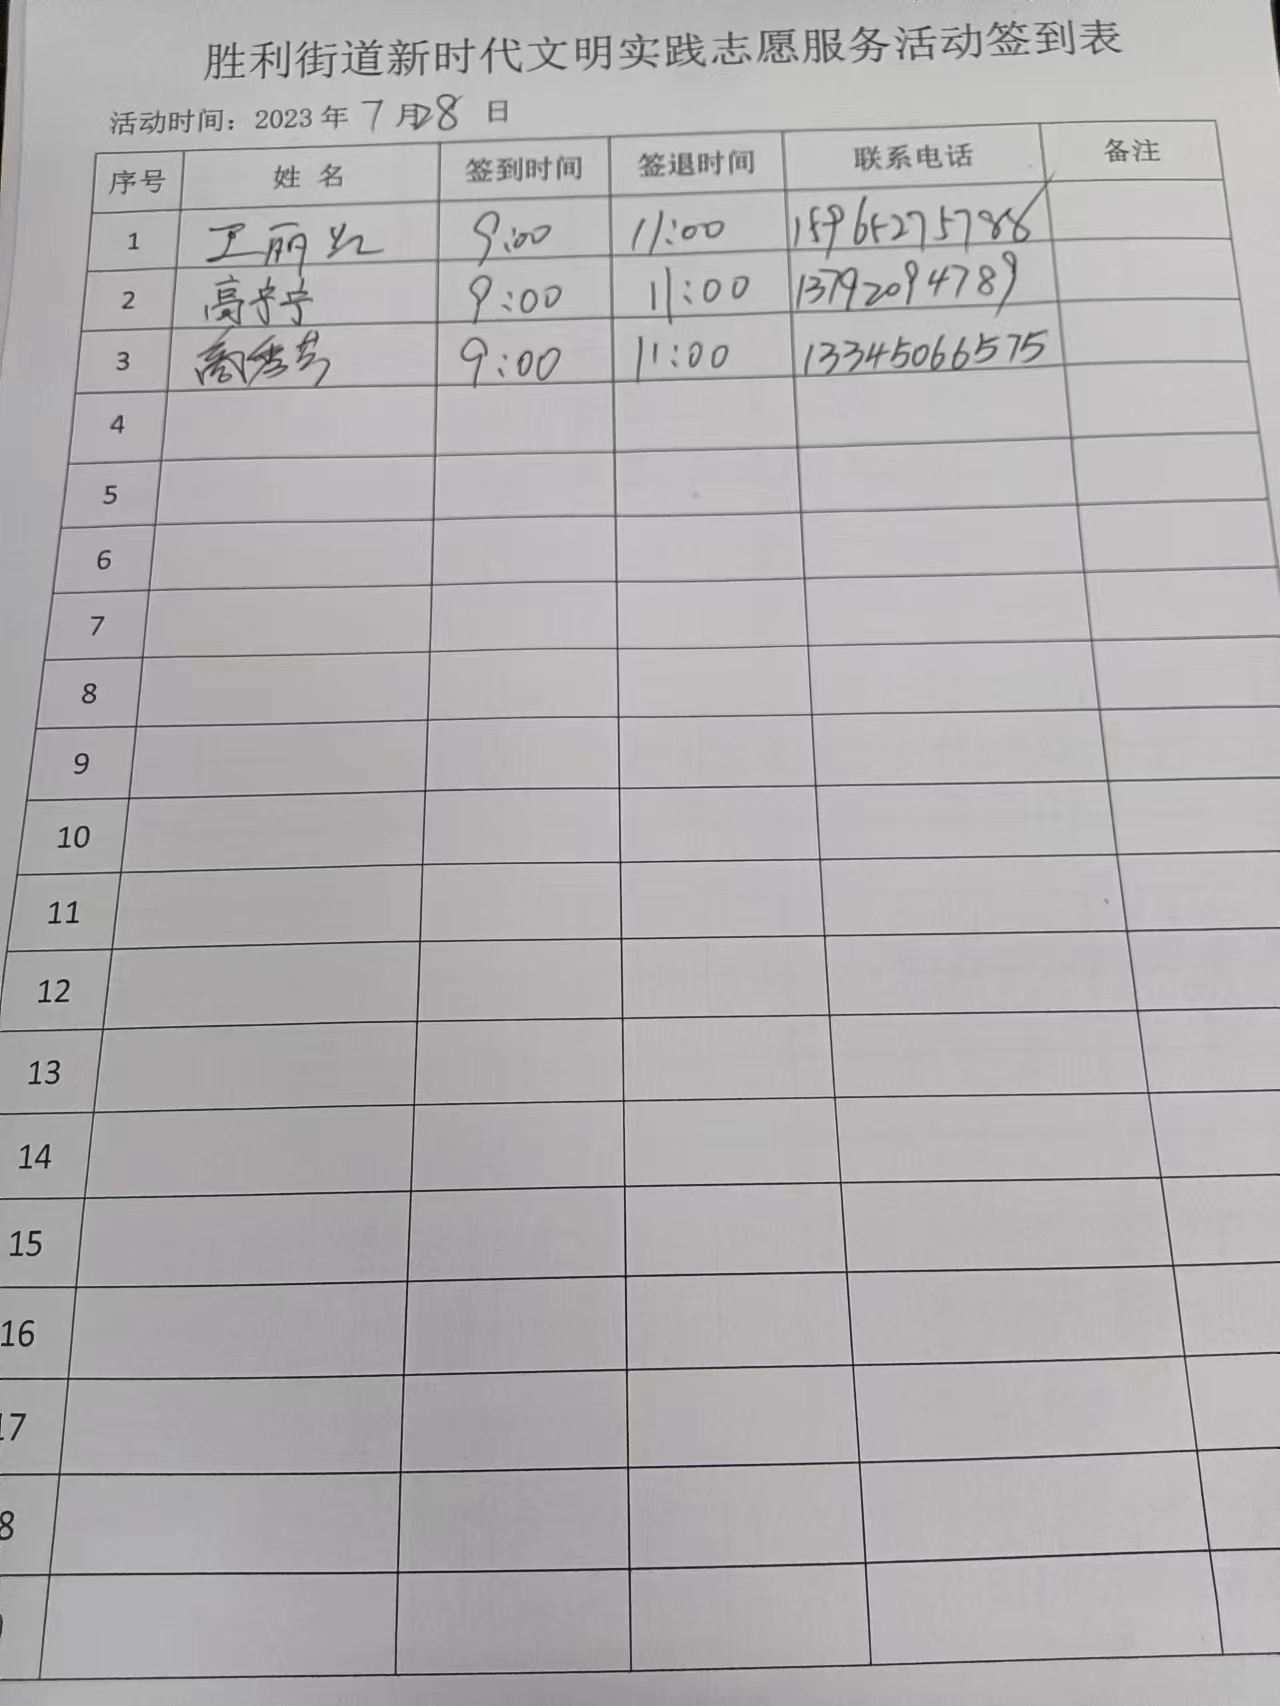 胜利街道新时代文明实践志愿服务活动签到表
活动时间：2023 年 7 月 28 日
序号 姓 名 签到时间 签退时间 联系电话 备注
1 丽 9:00 11:00 15965275788
2 高宁宁 9:00 11:00 13792094789
3 秀芳 9:00 11:00 13345066575
4
5
6
7
8
9
10
11
12
13
14
15
16
17
8